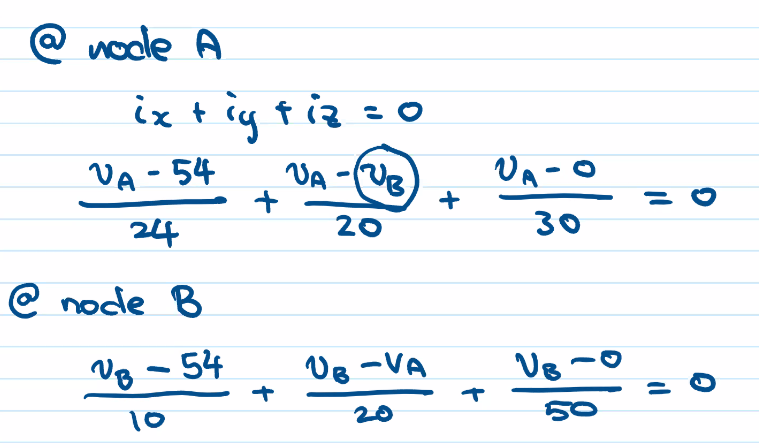 @ node A
ix + iy + iz = 0
(vA - 54)/24 + (vA - vB)/20 + (vA - 0)/30 = 0
@ node B
(vB - 54)/10 + (vB - vA)/20 + (vB - 0)/50 = 0